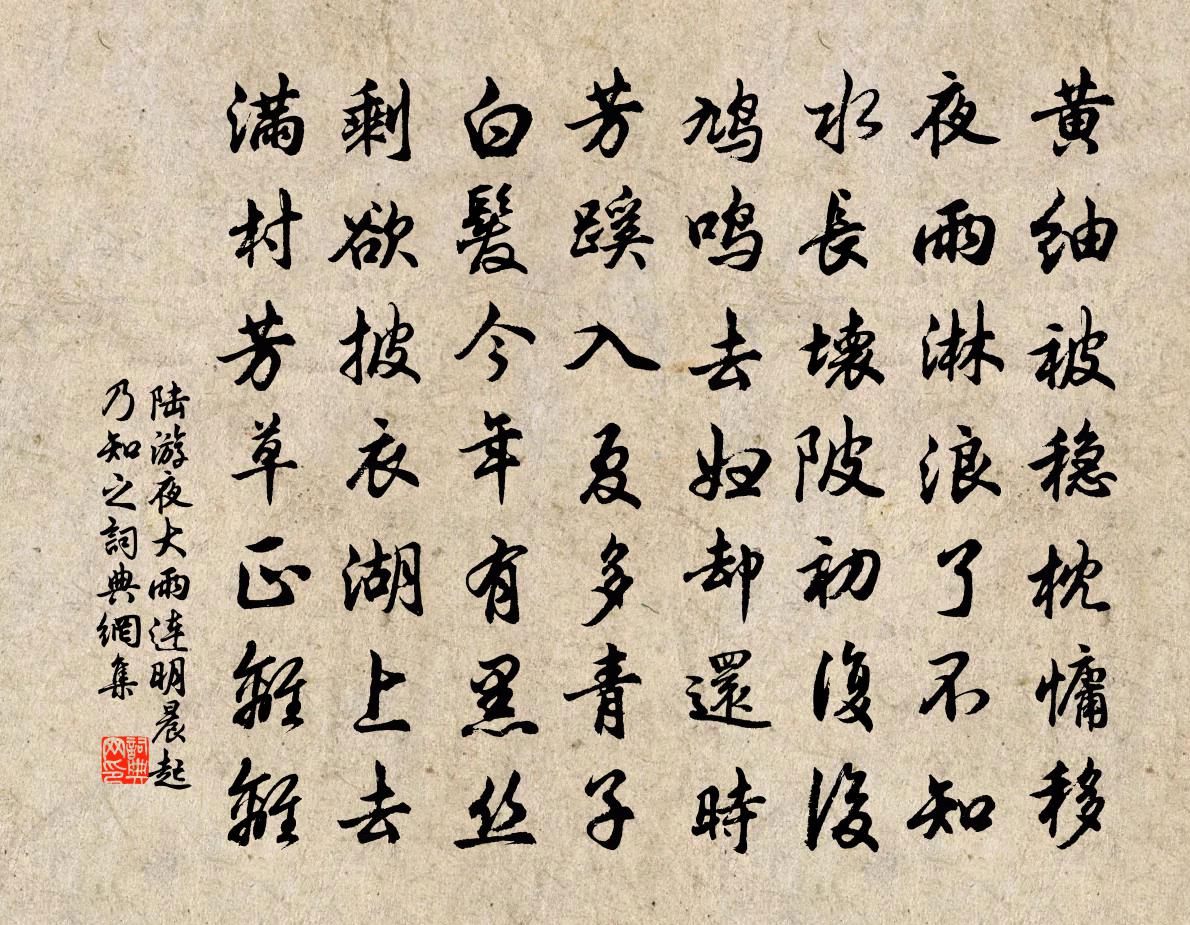 黄紬被稳枕慵移
夜雨淋浪了不知
水長壞陂初復後
鸠鸣去妇却還時
芳蹊入夏多青子
白髮今年有黑丝
剩欲披衣湖上去
满村芳草正離離
陆游夜大雨连明晨起
乃知之詞典網集
詞典网印